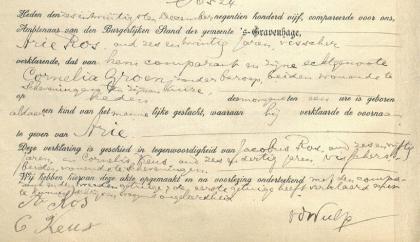 Heden den zesentwintigsten December negentien honderd vijf, compareerde voor ons,
Ambtenaar van den Burgerlijken Stand der gemeente 's-Gravenhage,
Arie Ros, oud zesentwintig jaren, visscher
verklarende, dat van hem comparant en zijne echtgenoote
Cornelia Groen, zonder beroep, beiden wonende te
Scheveningen, te zijnen huize,
op heden des morgens ure is geboren
aldaar een kind van het mannelijke geslacht, waaraan hij verklaarde de voornaam
te geven van Arie
Deze verklaring is geschied in tegenwoordigheid van Jacobus Ros, oud
jaren, en Cornelis Keus, oud zes en dertig jaren, visschers,
beiden wonende te Scheveningen.
Wij hebben hiervan deze akte opgemaakt en na voorlezing onderteekend met den compa-
rant en den tweeden getuige; de eerste getuige heeft verklaard
te kunnen
A. Ros
C Keus
vd Wulp